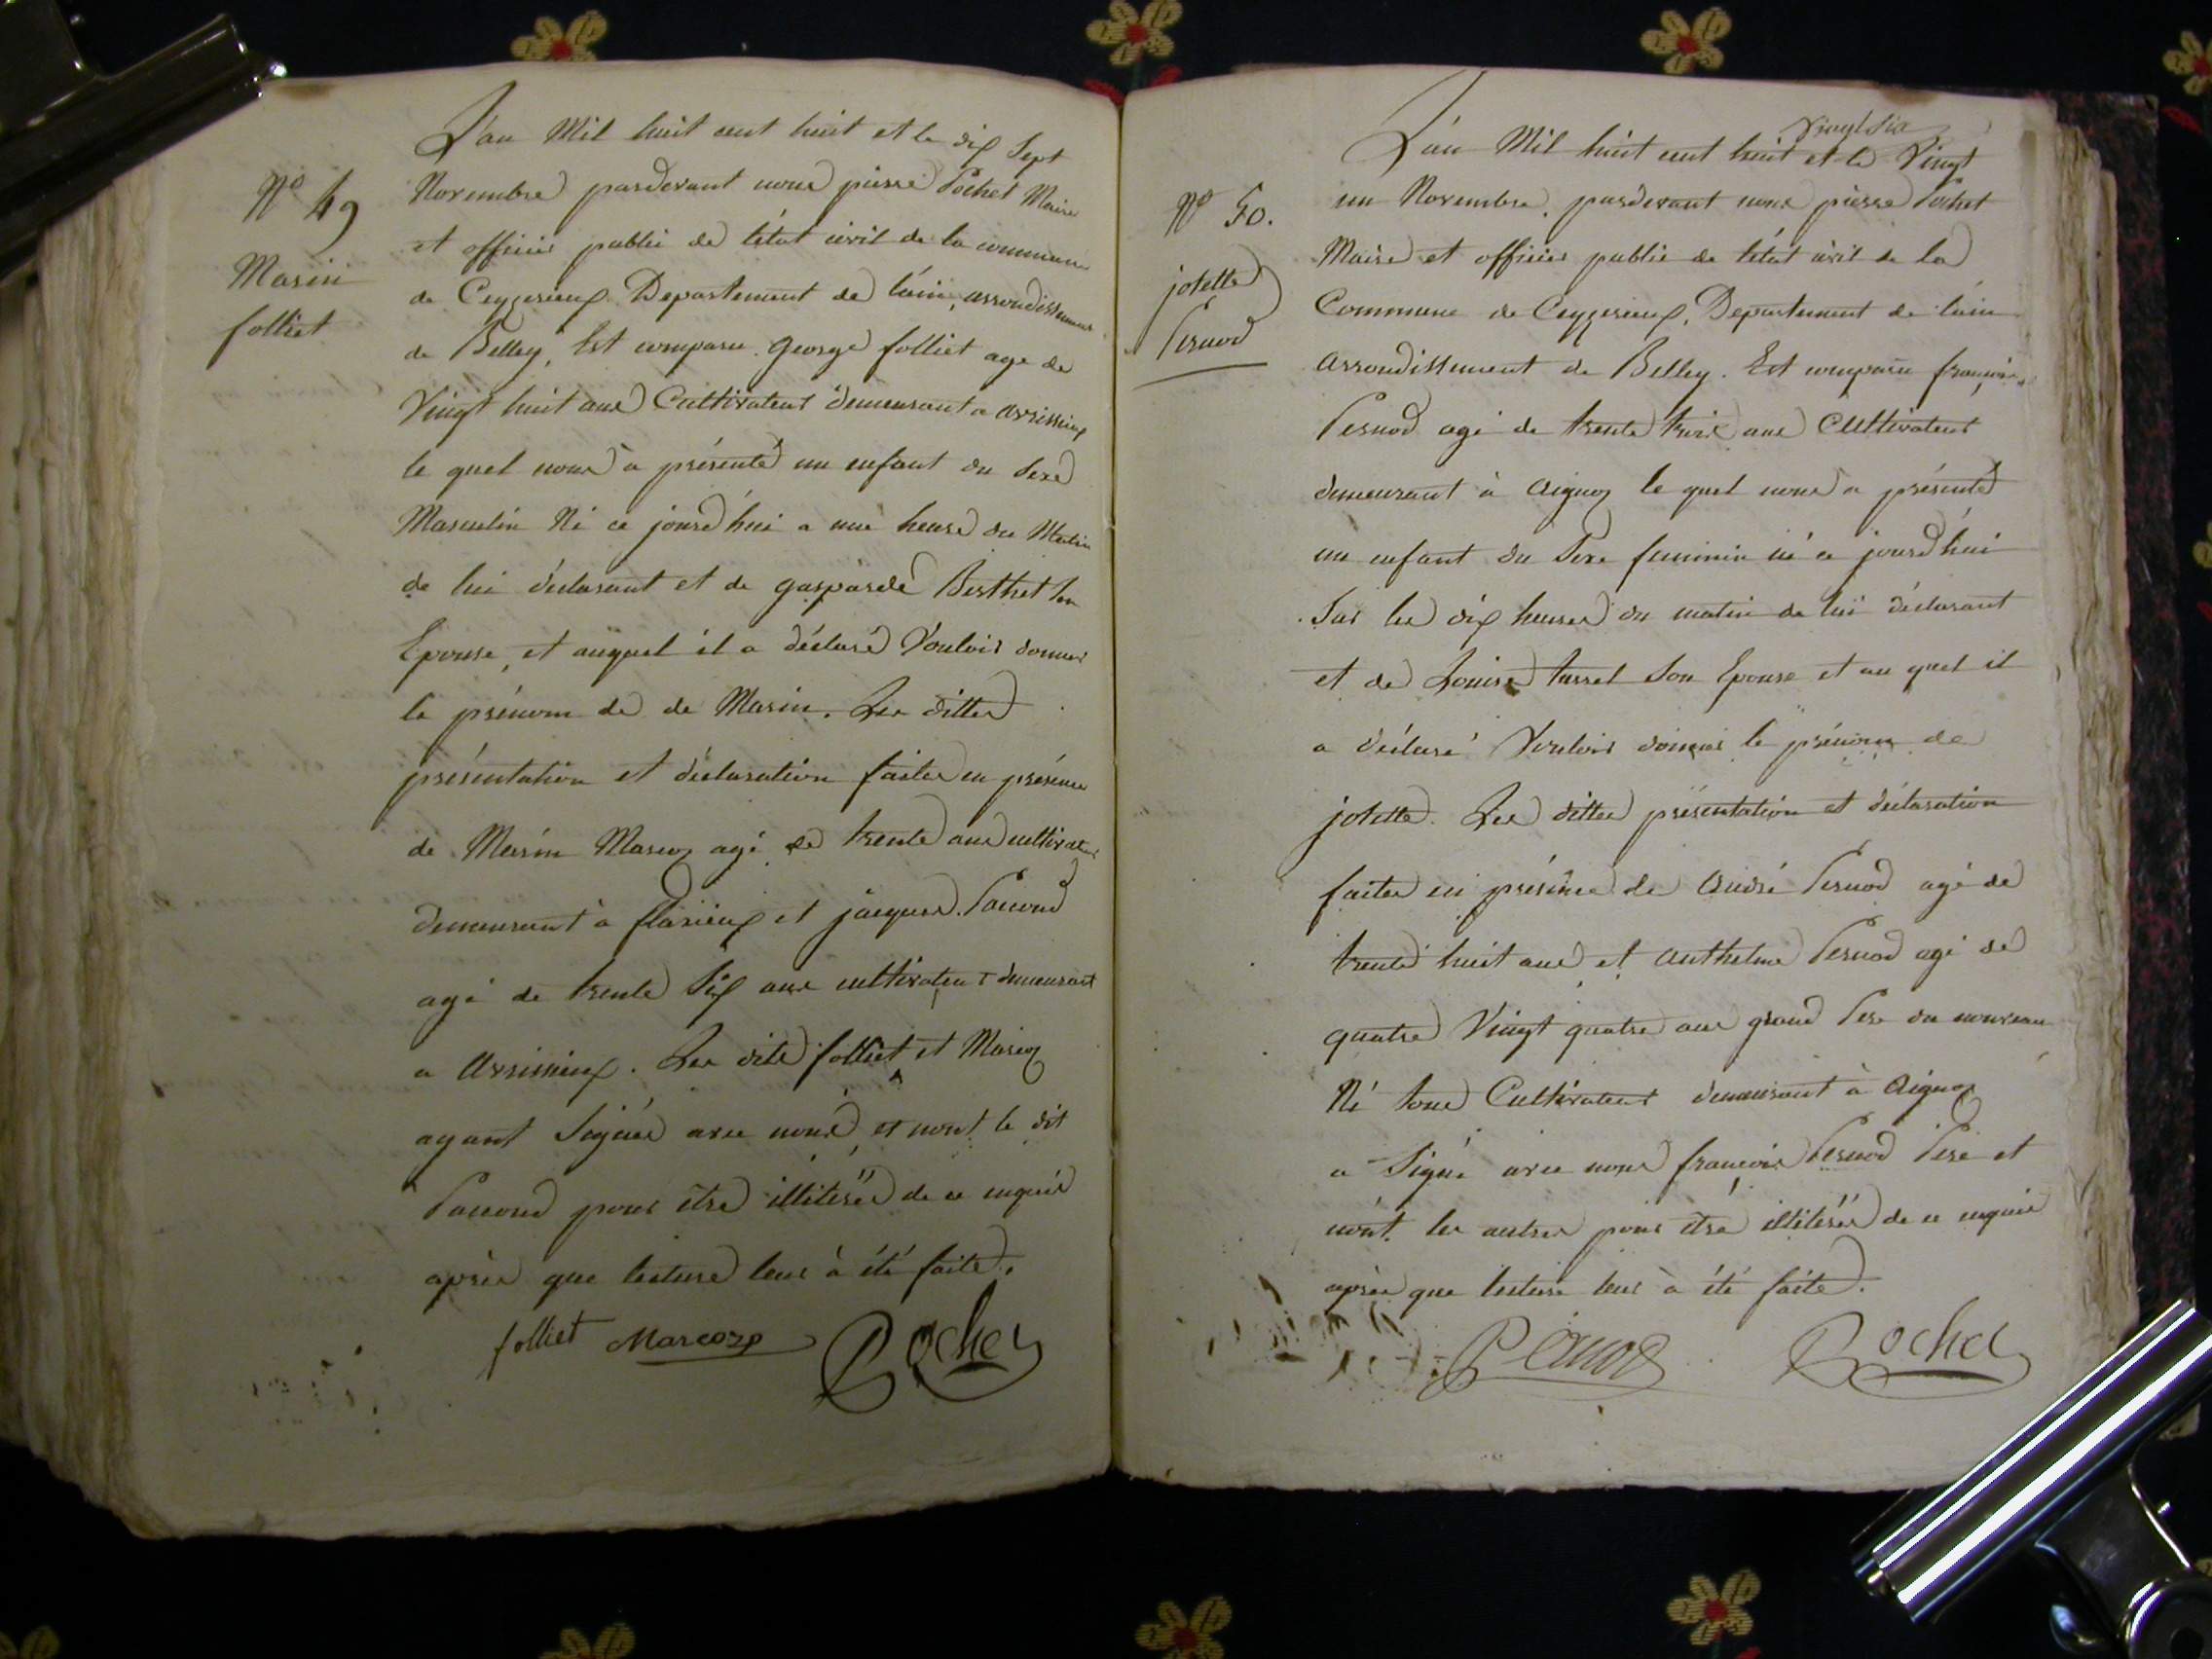 N° 49
Marin
folliet
L'an Mil huit cent huit et le dix Sept
Novembre pardevant nous pierre Pochet Maire
et officier public de l'état civil de la commune
de Ceyzerieux Departement de l'ain, arrondissement
de Belley, Est comparu George folliet age de
Vingt huit ans Cultivateur demeurant a avrissieux
le quel nous à présenté un enfant du Sexe
Masculin Né ce jourd'hui a une heure du Matin
de lui déclarant et de gasparde Berthet Son
Epouse, et auquel il a déclaré Vouloir donner
le prénom de de Marin. Les dittes
présentation et déclaration faites en présence
de Marin Marcoz agé de trente ans cultivateur
demeurant à flaxieux et jacques Paccoud
agé de trente Six ans cultivateur demeurant
a avrissieux. Les dits folliet et Marcoz
ayant Signés avec nous et nont le dit
Paccoud pour être illiterés de ce enquis
après que lecture leur à été faite.
folliet Marcoz Pochet
N° 50.
josette
Pernod
Vingt Six
L'an Mil huit cent huit et le Vingt
un Novembre, pardevant nous pierre Pochet
Maire et officier public de l'état civil de la
Commune de Ceyzerieux, Departement de l'ain
arrondissement de Belley. Est comparu françois
Pernod agé de trente trois ans Cultivateur
demeurant à aignoz le quel nous a présenté
un enfant du Sexe feminin né ce jourd'hui
Sur les dix heures du matin de lui déclarant
et de Louise tassel Son Epouse et au quel il
a déclaré Vouloir donner le prénom de
josette. Les dittes présentation et déclaration
faites en présence de andré Pernod agé de
trente huit ans et anthelme Pernod agé de
quatre Vingt quatre ans grand Pere du nouveau
Né tous Cultivateurs demeurant à aignoz
a Signé avec nous françois Pernod Pere et
nont les autres pour être illiterés de ce enquis
après que lecture leur à été faite.
Pernod Pochet